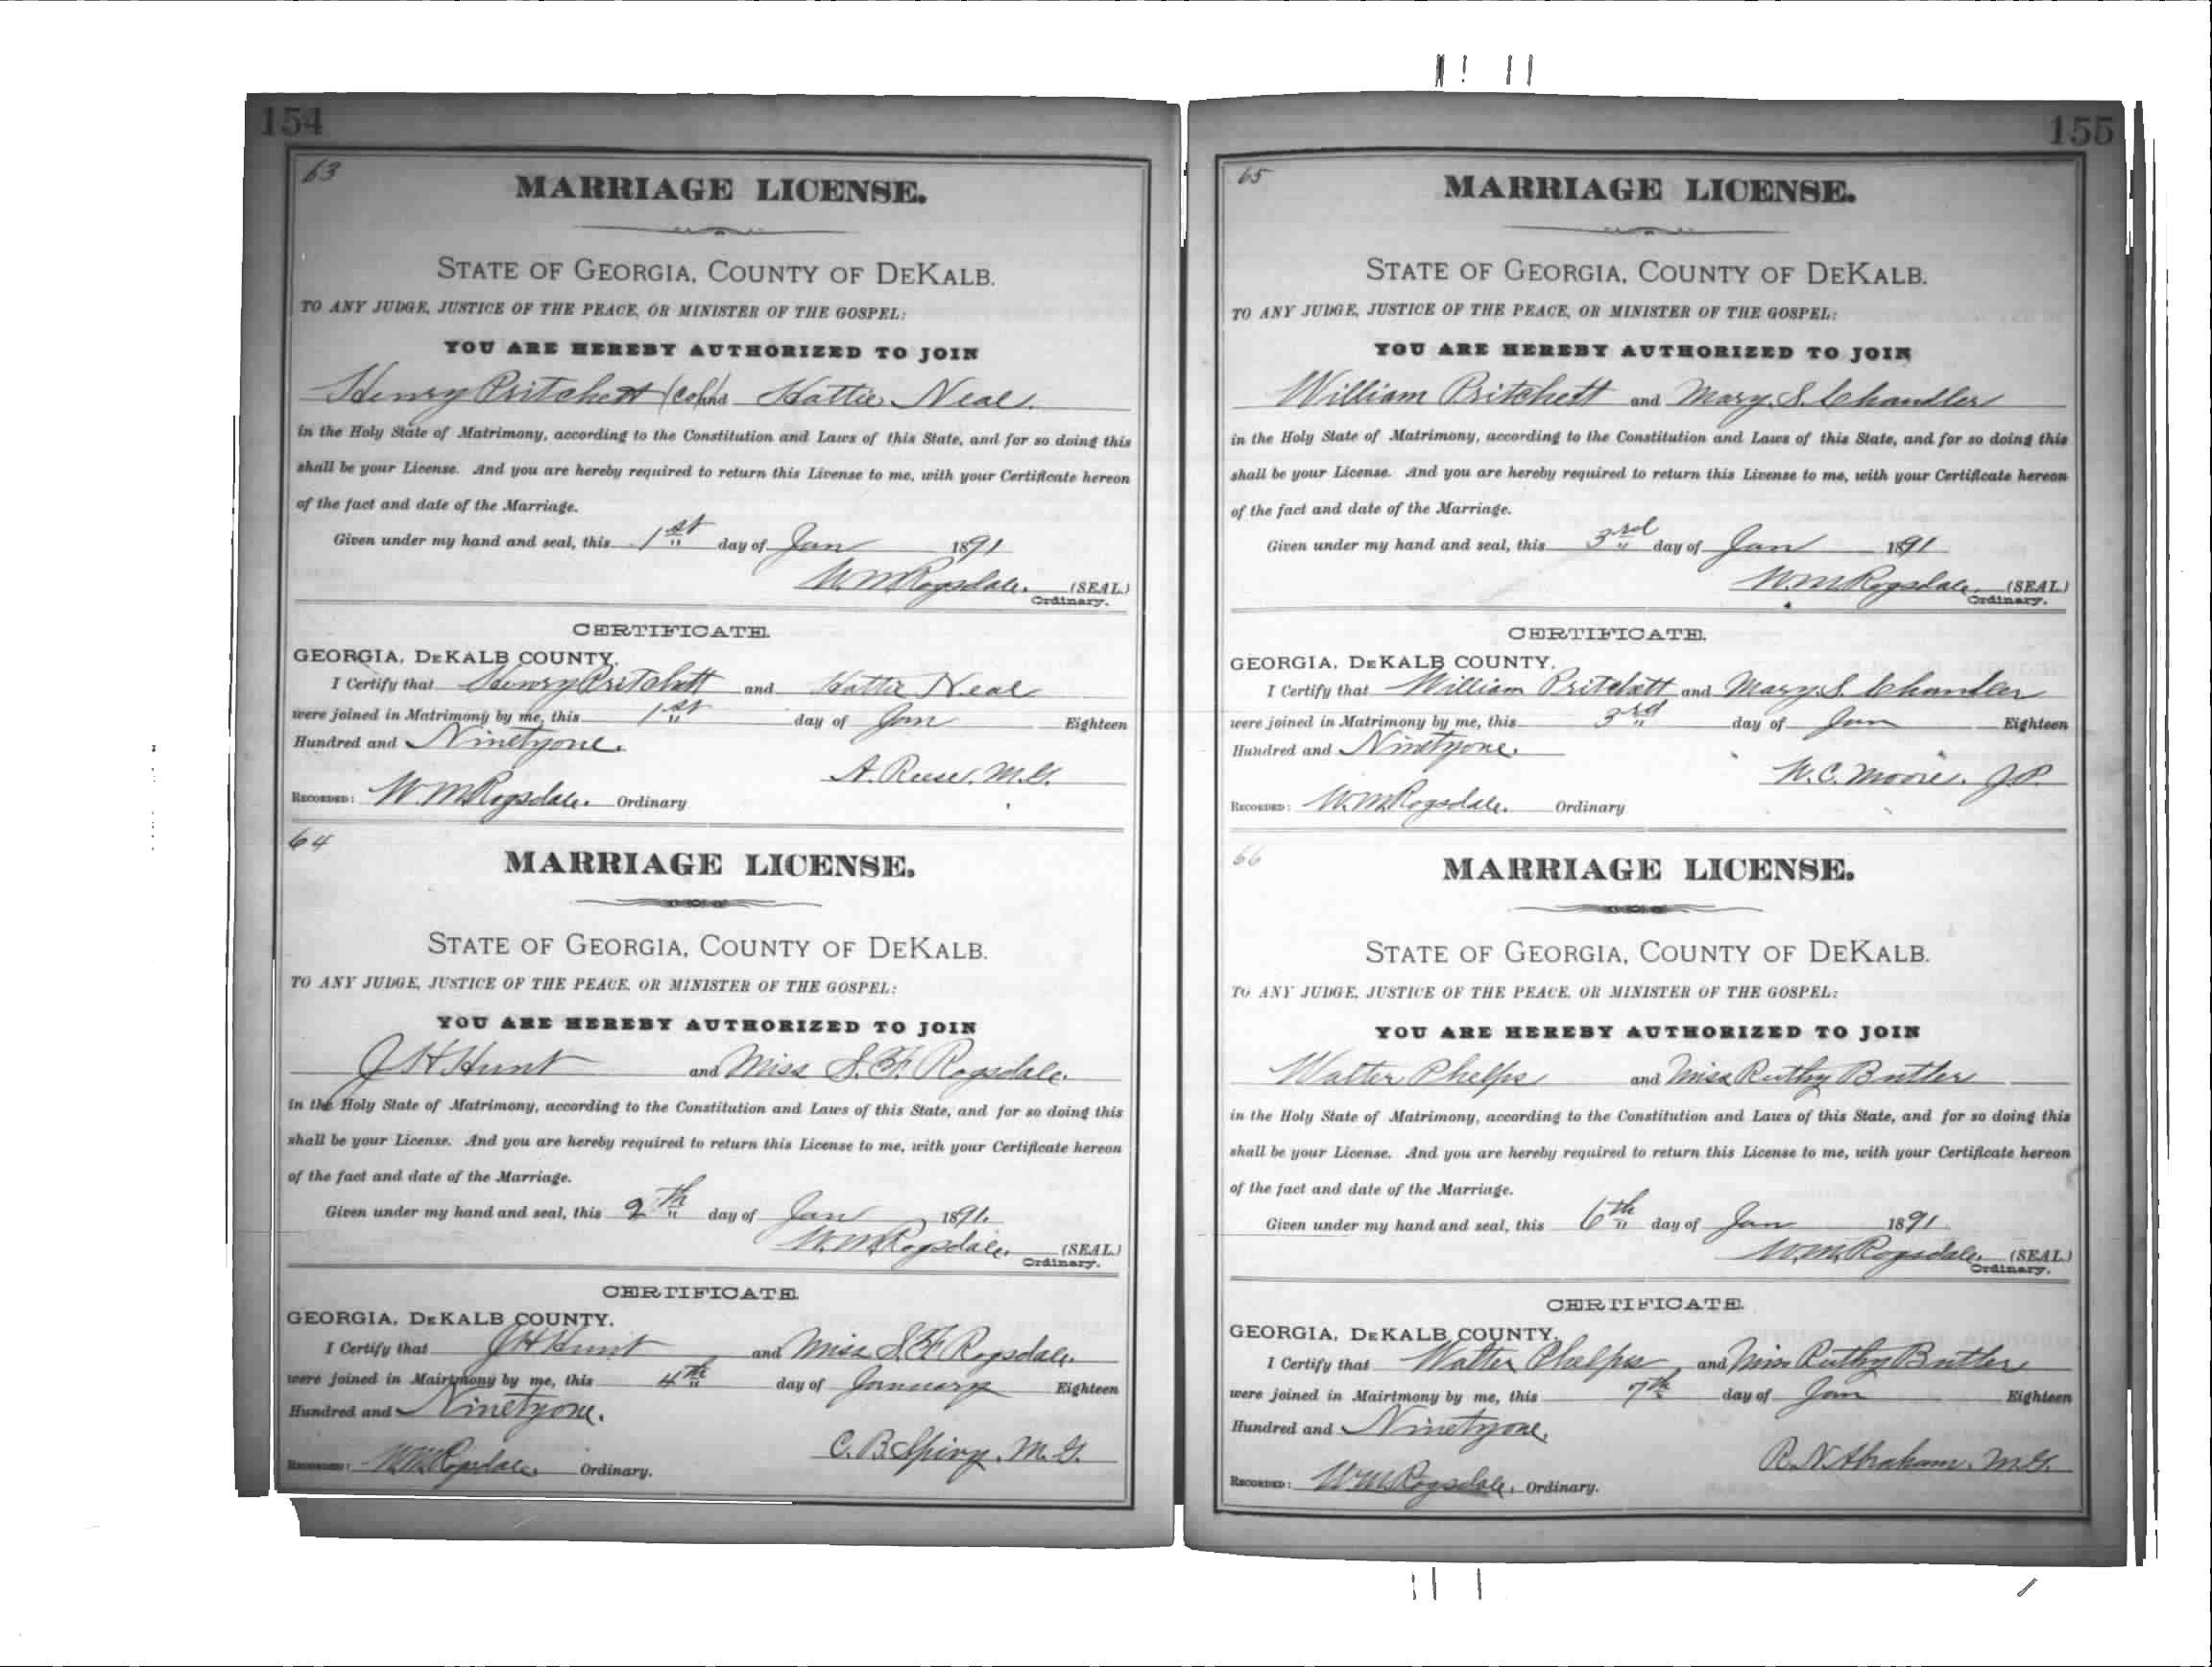 154
63
MARRIAGE LICENSE.
STATE OF GEORGIA, COUNTY OF DEKALB.
TO ANY JUDGE, JUSTICE OF THE PEACE, OR MINISTER OF THE GOSPEL:
YOU ARE HEREBY AUTHORIZED TO JOIN
Henry Pritchett (Col) and Hattie Neal.
in the Holy State of Matrimony, according to the Constitution and Laws of this State, and for so doing this
shall be your License. And you are hereby required to return this License to me, with your Certificate hereon
of the fact and date of the Marriage.
Given under my hand and seal, this 1st day of Jan 1891
W.M.Ragsdale. (SEAL)
Ordinary.
CERTIFICATE.
GEORGIA, DEKALB COUNTY.
I Certify that Henry Pritchett and Hattie Neal
were joined in Matrimony by me, this 1st day of Jan Eighteen
Hundred and Ninetyone.
A. Reese. M.G.
RECORDED: W.M.Ragsdale. Ordinary
64
MARRIAGE LICENSE.
STATE OF GEORGIA, COUNTY OF DEKALB.
TO ANY JUDGE, JUSTICE OF THE PEACE, OR MINISTER OF THE GOSPEL:
YOU ARE HEREBY AUTHORIZED TO JOIN
J H Hunt and Miss S. F. Ragsdale.
in the Holy State of Matrimony, according to the Constitution and Laws of this State, and for so doing this
shall be your License. And you are hereby required to return this License to me, with your Certificate hereon
of the fact and date of the Marriage.
Given under my hand and seal, this 2th day of Jan 1891.
W.M.Ragsdale. (SEAL)
Ordinary.
CERTIFICATE.
GEORGIA, DEKALB COUNTY.
I Certify that J H Hunt and Miss S. F Ragsdale.
were joined in Mairtmony by me, this 4th day of January Eighteen
Hundred and Ninetyone.
C. B. Spivy. M. G.
RECORDED: W.M.Ragsdale. Ordinary.
155
65
MARRIAGE LICENSE.
STATE OF GEORGIA, COUNTY OF DEKALB.
TO ANY JUDGE, JUSTICE OF THE PEACE, OR MINISTER OF THE GOSPEL:
YOU ARE HEREBY AUTHORIZED TO JOIN
William Pritchett and Mary. S. Chandler
in the Holy State of Matrimony, according to the Constitution and Laws of this State, and for so doing this
shall be your License. And you are hereby required to return this License to me, with your Certificate hereon
of the fact and date of the Marriage.
Given under my hand and seal, this 3rd day of Jan 1891
W.M.Ragsdale. (SEAL)
Ordinary.
CERTIFICATE.
GEORGIA, DEKALB COUNTY.
I Certify that William Pritchett and Mary. S. Chandler
were joined in Matrimony by me, this 3rd day of Jan Eighteen
Hundred and Ninetyone.
W. C. Moore. J.P.
RECORDED: W.M.Ragsdale. Ordinary
66
MARRIAGE LICENSE.
STATE OF GEORGIA, COUNTY OF DEKALB.
TO ANY JUDGE, JUSTICE OF THE PEACE, OR MINISTER OF THE GOSPEL:
YOU ARE HEREBY AUTHORIZED TO JOIN
Walter Phelps and Miss Ruthy Butler
in the Holy State of Matrimony, according to the Constitution and Laws of this State, and for so doing this
shall be your License. And you are hereby required to return this License to me, with your Certificate hereon
of the fact and date of the Marriage.
Given under my hand and seal, this 6th day of Jan 1891
W.M.Ragsdale. (SEAL)
Ordinary.
CERTIFICATE.
GEORGIA, DEKALB COUNTY.
I Certify that Walter Phelps and Miss Ruthy Butler
were joined in Mairtmony by me, this 7th day of Jan Eighteen
Hundred and Ninetyone.
R. N. Abraham. M.G.
RECORDED: W.M.Ragsdale. Ordinary.